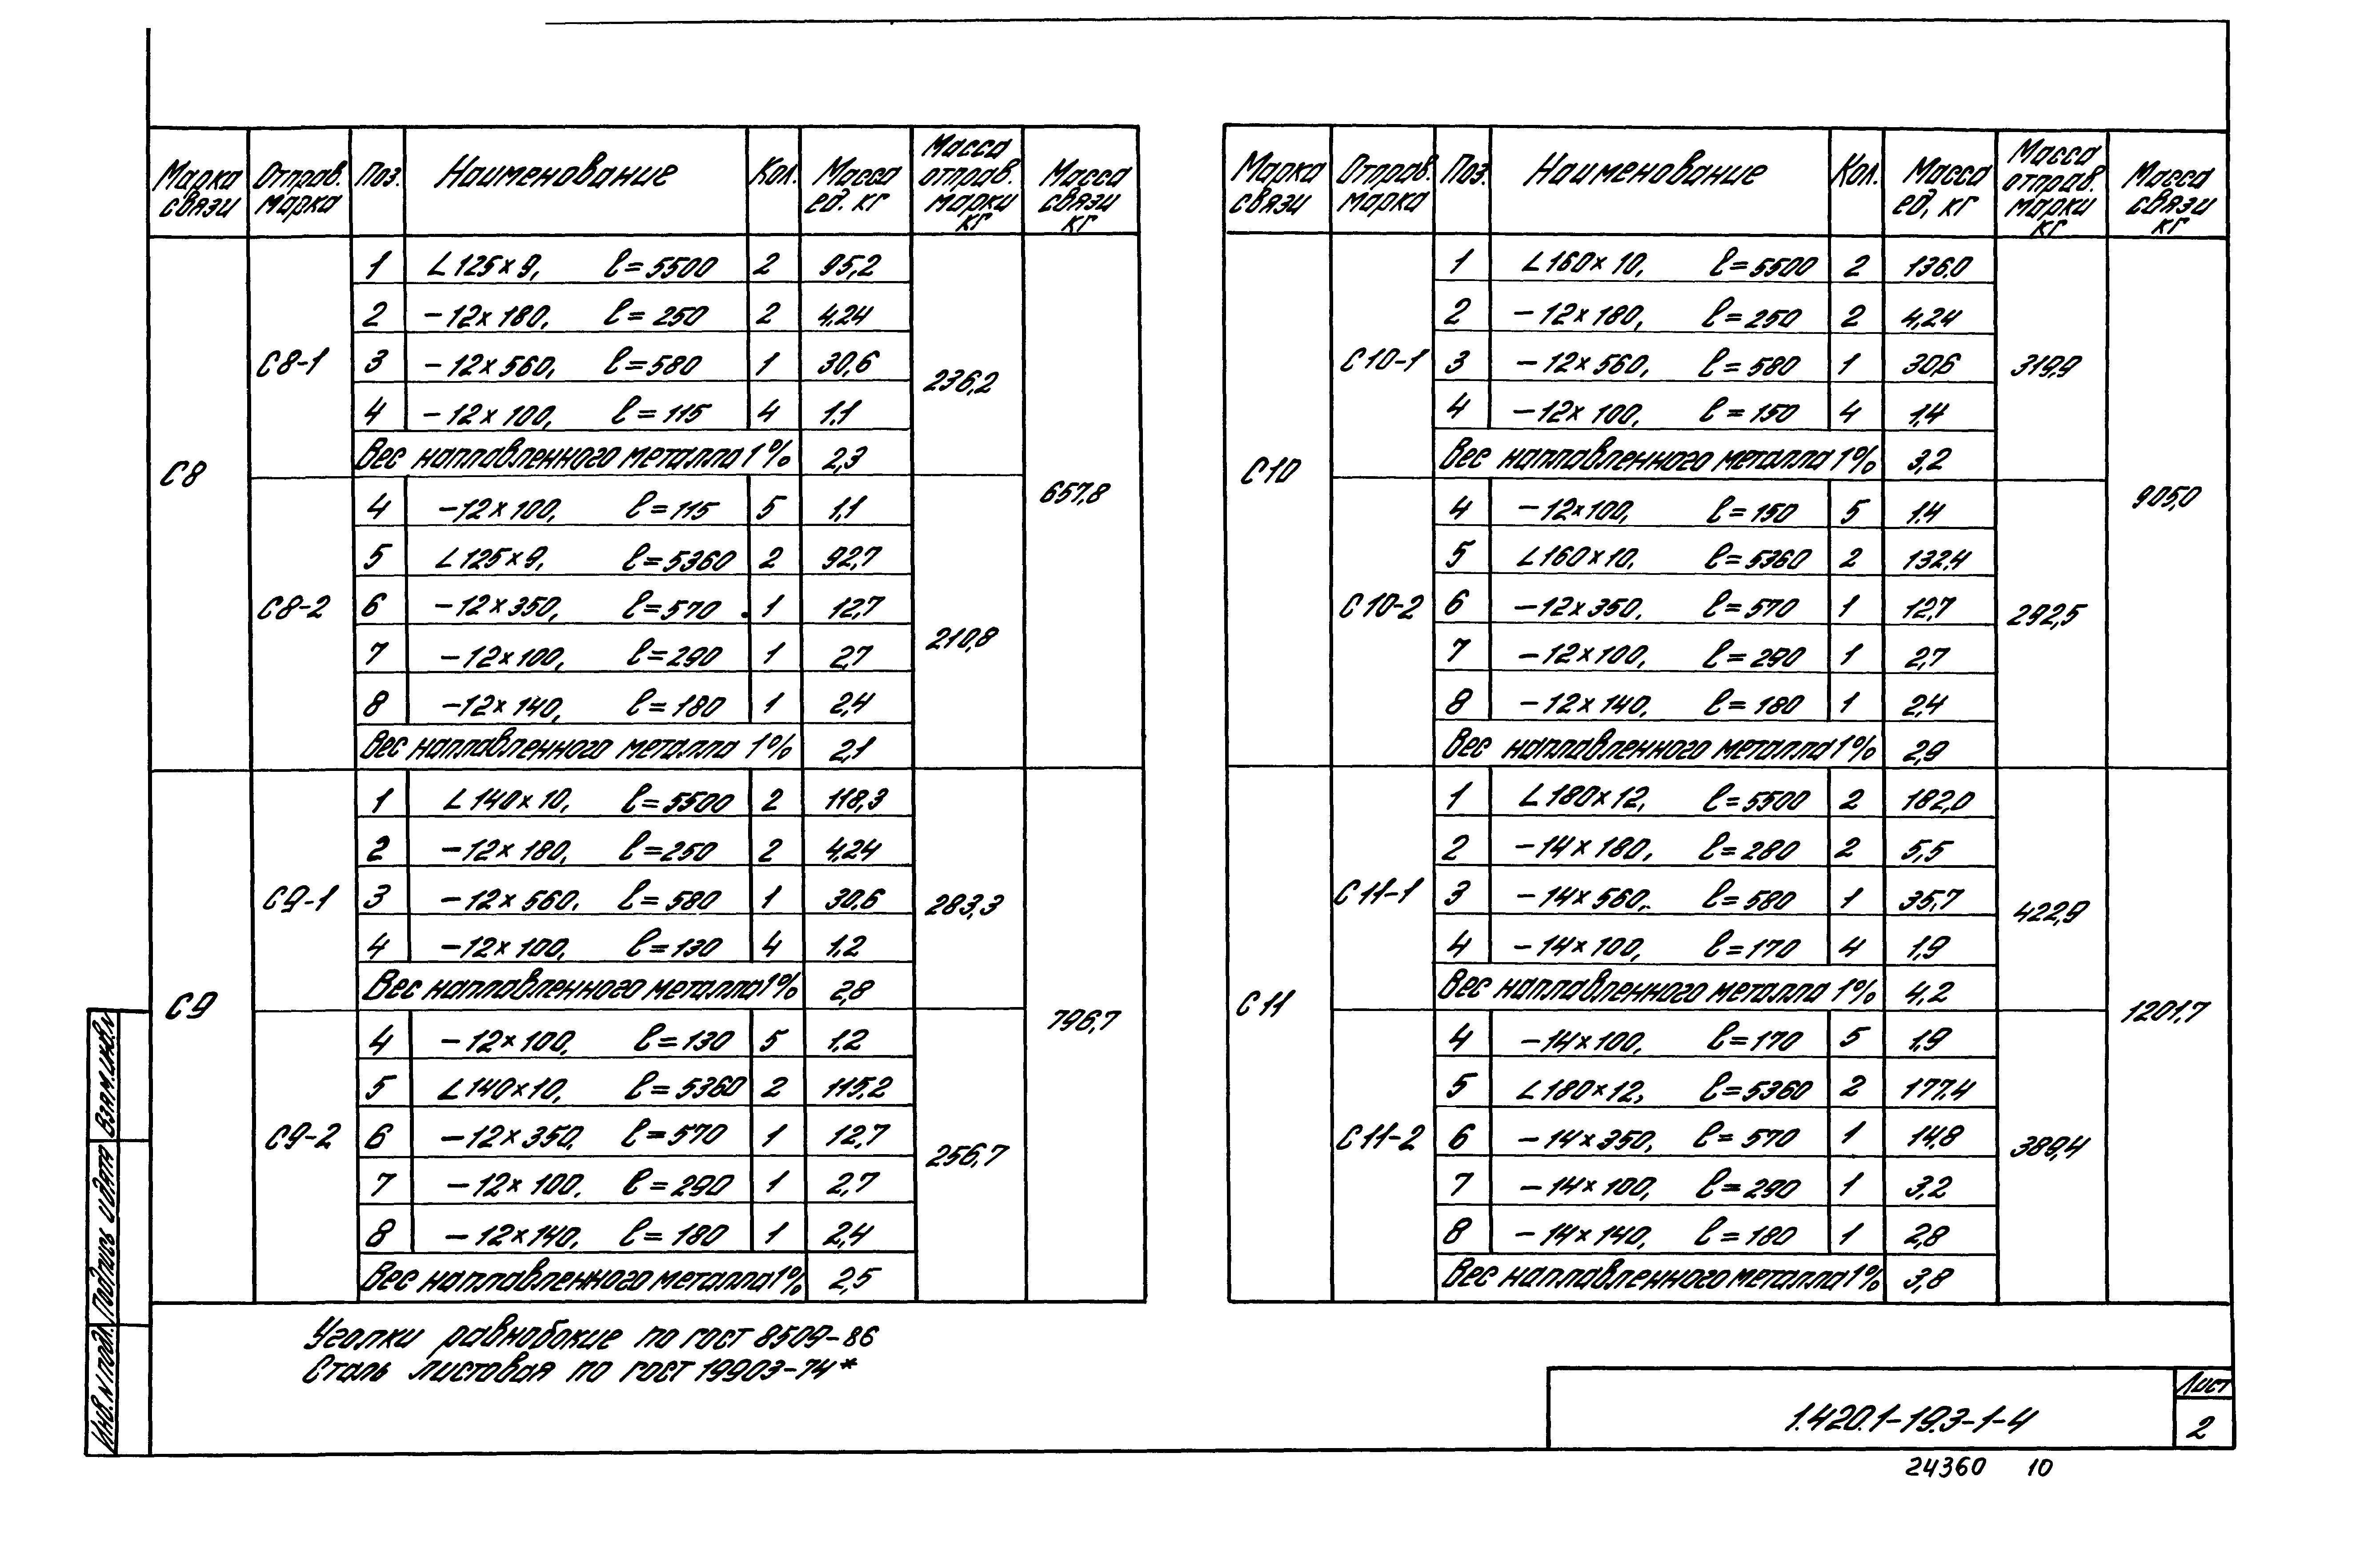 Марка связи Отправ. марка Поз. Наименование Кол. Масса ед. кг Масса отправ. марки кг Масса связи кг
С8 С8-1 1 L 125×9, ℓ=5500 2 95,2 236,2 657,8
2 -12×180, ℓ=250 2 4,24
3 -12×560, ℓ=580 1 30,6
4 -12×100, ℓ=115 4 1.1
Вес наплавленного металла 1% 2,3
С8-2 4 -12×100, ℓ=115 5 1,1 210,8
5 L 125×9, ℓ=5360 2 92,7
6 -12×350, ℓ=570 1 12,7
7 -12×100, ℓ=290 1 2,7
8 -12×140, ℓ=180 1 2,4
Вес наплавленного металла 1% 2,1
С9 С9-1 1 L 140×10, ℓ=5500 2 118,3 283,3 796,7
2 -12×180, ℓ=250 2 4,24
3 -12×560, ℓ=580 1 30,6
4 -12×100, ℓ=130 4 1,2
Вес наплавленного металла 1% 2,8
С9-2 4 -12×100, ℓ=130 5 1,2 256,7
5 L 140×10, ℓ=5360 2 115,2
6 -12×350, ℓ=570 1 12,7
7 -12×100, ℓ=290 1 2,7
8 -12×140, ℓ=180 1 2,4
Вес наплавленного металла 1% 2,5
Марка связи Отправ. марка Поз. Наименование Кол. Масса ед, кг Масса отправ. марки кг Масса связи кг
С10 С10-1 1 L 160×10, ℓ=5500 2 136,0 319,9 905,0
2 -12×180, ℓ=250 2 4,24
3 -12×560, ℓ=580 1 30,6
4 -12×100, ℓ=150 4 1,4
Вес наплавленного металла 1% 3,2
С10-2 4 -12×100, ℓ=150 5 1,4 292,5
5 L 160×10, ℓ=5360 2 132,4
6 -12×350, ℓ=570 1 12,7
7 -12×100, ℓ=290 1 2,7
8 -12×140, ℓ=180 1 2,4
Вес наплавленного металла 1% 2,9
С11 С11-1 1 L 180×12, ℓ=5500 2 182,0 422,9 1201,7
2 -14×180, ℓ=280 2 5,5
3 -14×560, ℓ=580 1 35,7
4 -14×100, ℓ=170 4 1,9
Вес наплавленного металла 1% 4,2
С11-2 4 -14×100, ℓ=170 5 1,9 389,4
5 L 180×12, ℓ=5360 2 177,4
6 -14×350, ℓ=570 1 14,8
7 -14×100, ℓ=290 1 3,2
8 -14×140, ℓ=180 1 2,8
Вес наплавленного металла 1% 3,8
Уголки равнобокие по гост 8509-86
Сталь листовая по гост 19903-74*
Инв. N подл. Подпись и дата Взам. инв. N
1.420.1-19.3-1-4
Лист
2
24360 10